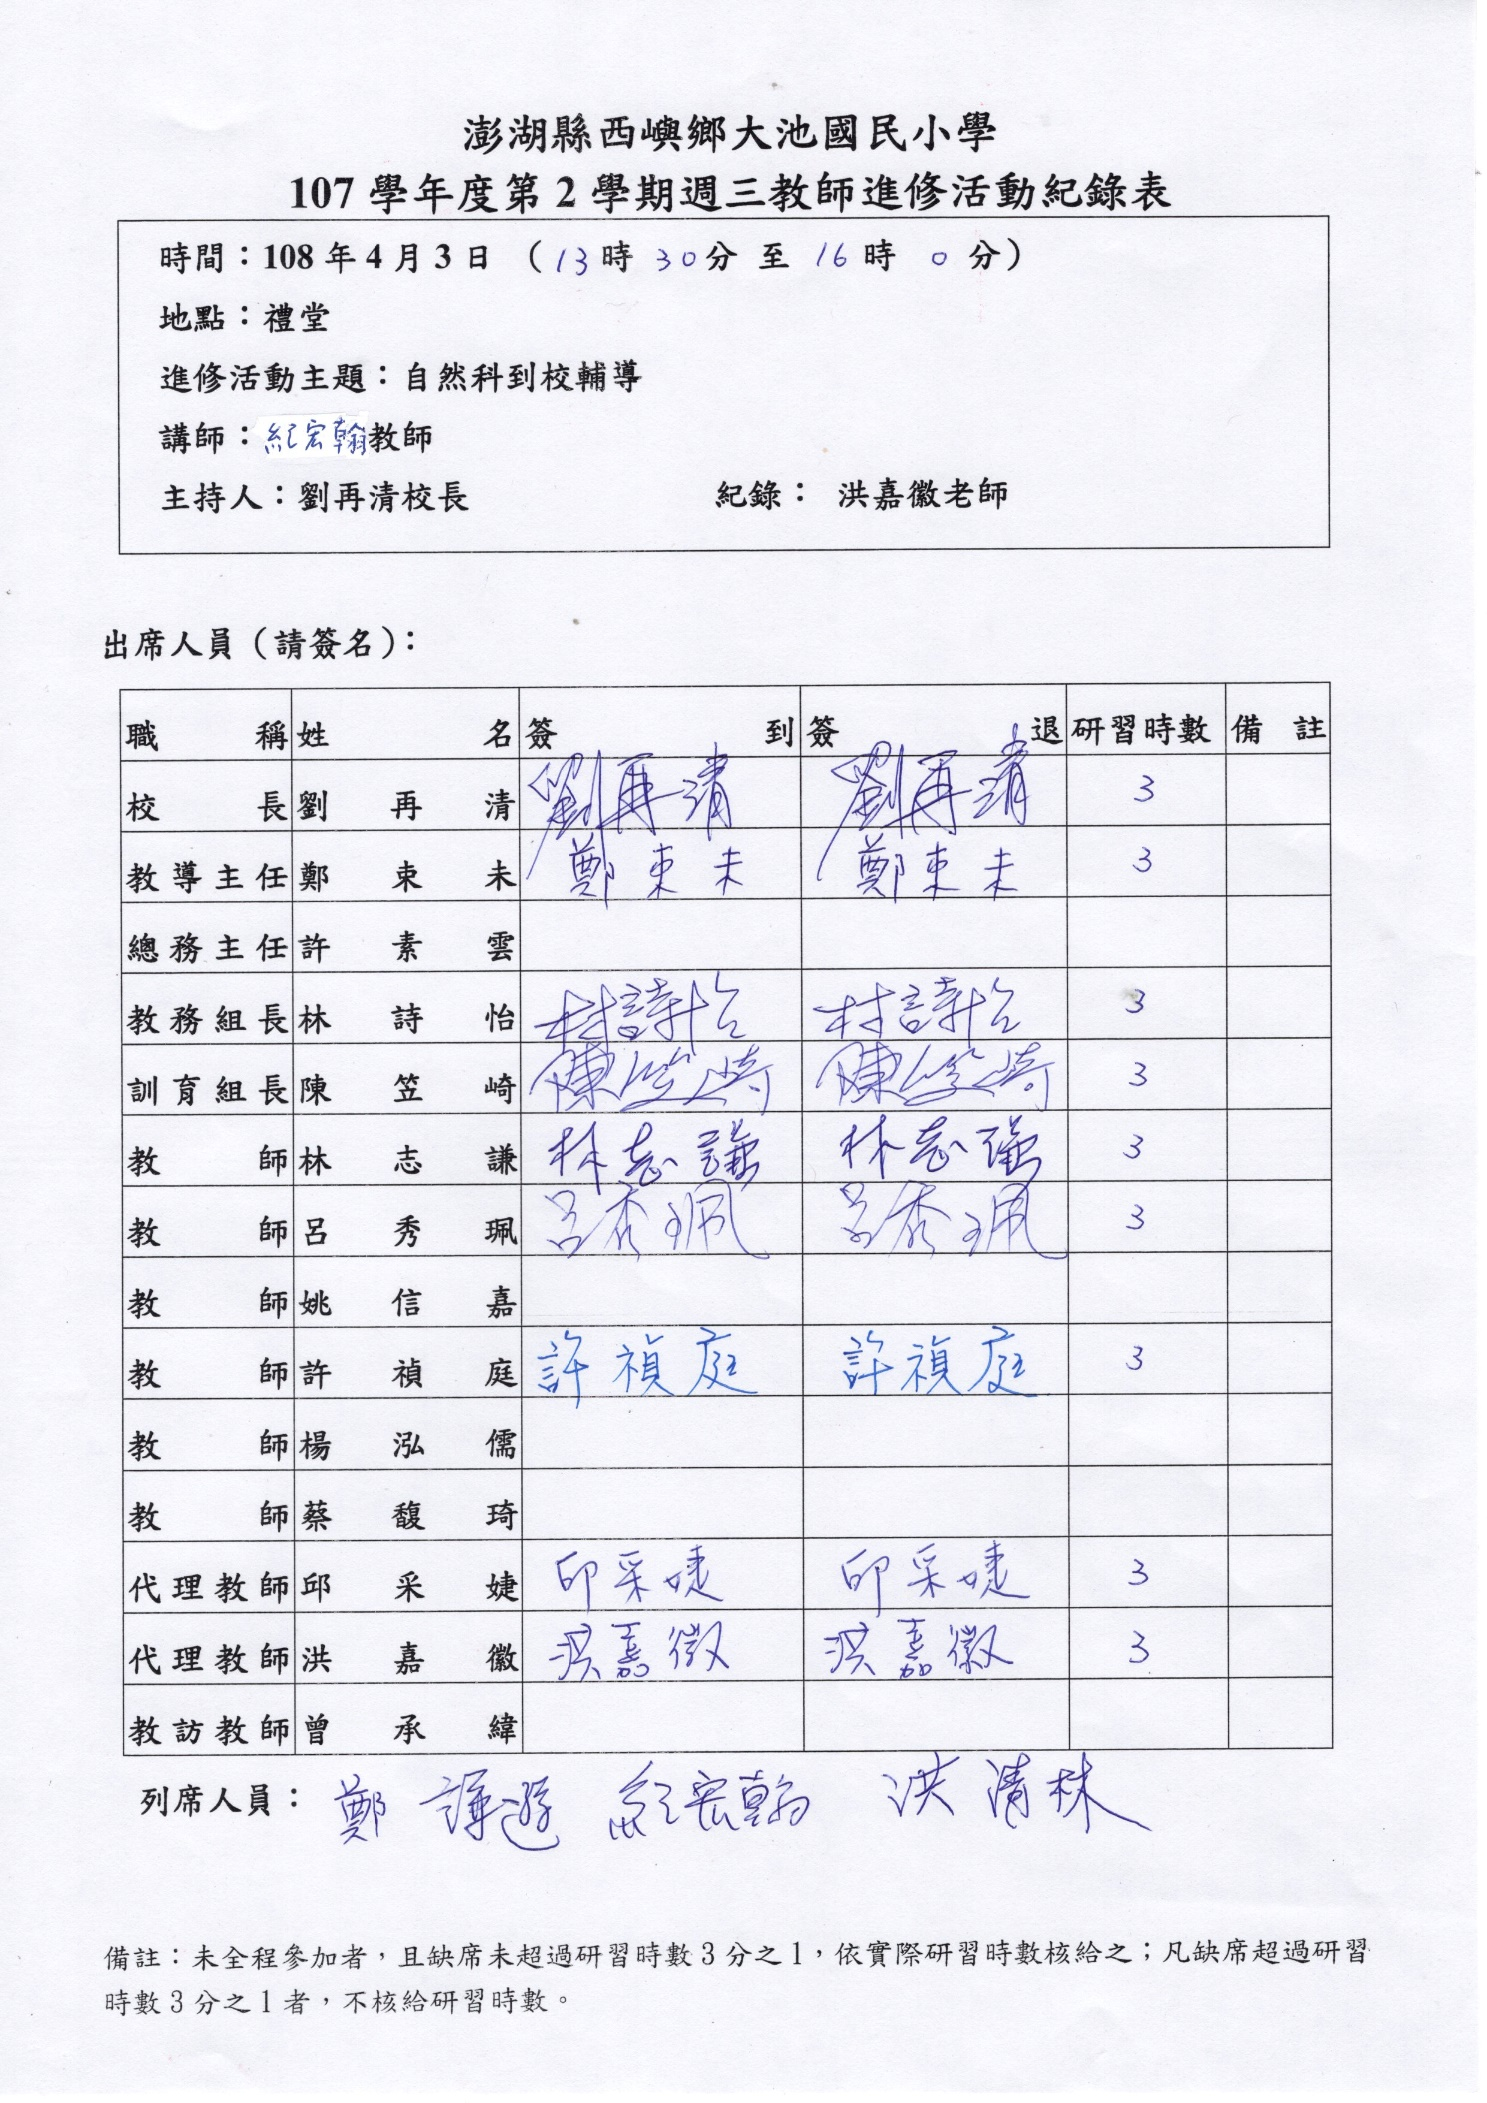 澎湖縣西嶼鄉大池國民小學
107 學年度第 2 學期週三教師進修活動紀錄表
時間：108 年 4 月 3 日 （13時 30分 至 16 時 0 分）
地點：禮堂
進修活動主題：自然科到校輔導
講師：紀宏翰教師
主持人：劉再清校長 紀錄： 洪嘉徽老師
出席人員（請簽名）：
職稱 姓名 簽到 簽退 研習時數 備註
校長 劉再清 劉再清 劉再清 3
教導主任 鄭束未 鄭束未 鄭束未 3
總務主任 許素雲
教務組長 林詩怡 林詩怡 林詩怡 3
訓育組長 陳笠崎 陳笠崎 陳笠崎 3
教師 林志謙 林志謙 林志謙 3
教師 呂秀珮 呂秀珮 呂秀珮 3
教師 姚信嘉
教師 許禎庭 許禎庭 許禎庭 3
教師 楊泓儒
教師 蔡馥琦
代理教師 邱采婕 邱采婕 邱采婕 3
代理教師 洪嘉徽 洪嘉徽 洪嘉徽 3
教訪教師 曾承緯
列席人員： 鄭謙遜 紀宏翰 洪清林
備註：未全程參加者，且缺席未超過研習時數 3 分之 1，依實際研習時數核給之；凡缺席超過研習
時數 3 分之 1 者，不核給研習時數。